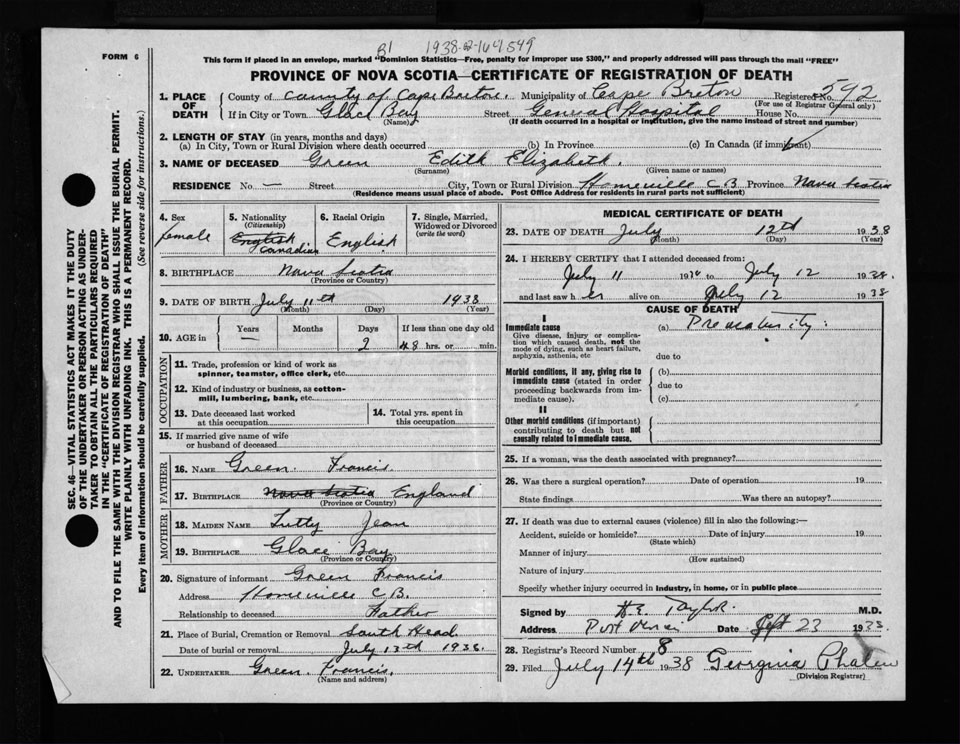 B1 1938-02-164549
FORM 6
This form if placed in an envelope, marked "Dominion Statistics—Free, penalty for improper use $300," and properly addressed will pass through the mail "FREE"
PROVINCE OF NOVA SCOTIA—CERTIFICATE OF REGISTRATION OF DEATH
1. PLACE OF DEATH County of County of Cape Breton. Municipality of Cape Breton Registered No. 592
(For use of Registrar General only)
If in City or Town Glace Bay Street General Hospital House No.
(Name) (If death occurred in a hospital or institution, give the name instead of street and number)
2. LENGTH OF STAY (in years, months and days)
(a) In City, Town or Rural Division where death occurred (b) In Province (c) In Canada (if immigrant)
3. NAME OF DECEASED Green Edith Elizabeth.
(Surname) (Given name or names)
RESIDENCE No. — Street City, Town or Rural Division Homeville C B Province Nova Scotia
(Residence means usual place of abode. Post Office Address for residents in rural parts not sufficient)
4. Sex
female
5. Nationality
(Citizenship)
English
Canadian
6. Racial Origin
English
7. Single, Married, Widowed or Divorced
(write the word)
8. BIRTHPLACE Nova Scotia
(Province or Country)
9. DATE OF BIRTH July 11th 1938
(Month) (Day) (Year)
10. AGE in Years Months Days If less than one day old
— 2 48 hrs. or min.
OCCUPATION
11. Trade, profession or kind of work as
spinner, teamster, office clerk, etc.
12. Kind of industry or business, as cotton-
mill, lumbering, bank, etc.
13. Date deceased last worked
at this occupation
14. Total yrs. spent in
this occupation
15. If married give name of wife
or husband of deceased
FATHER
16. NAME Green. Francis.
17. BIRTHPLACE Nova Scotia England
(Province or Country)
MOTHER
18. MAIDEN NAME Tutty Jean
19. BIRTHPLACE Glace Bay
(Province or Country)
20. Signature of informant Green Francis
Address Homeville C B.
Relationship to deceased Father
21. Place of Burial, Cremation or Removal South Head
Date of burial or removal July 13th 1938.
22. UNDERTAKER Green. Francis.
(Name and address)
MEDICAL CERTIFICATE OF DEATH
23. DATE OF DEATH July 12th 1938
(Month) (Day) (Year)
24. I HEREBY CERTIFY that I attended deceased from:
July 11 19 to July 12 1938.
and last saw her alive on July 12 1938
CAUSE OF DEATH
I
Immediate cause
Give disease, injury or complica-
tion which caused death, not the
mode of dying, such as heart failure,
asphyxia, asthenia, etc
(a) Prematurity.
due to
Morbid conditions, if any, giving rise to
immediate cause (stated in order
proceeding backwards from im-
mediate cause).
(b)
due to
(c)
II
Other morbid conditions (if important)
contributing to death but not
causally related to immediate cause.
25. If a woman, was the death associated with pregnancy?
26. Was there a surgical operation? Date of operation 19
State findings Was there an autopsy?
27. If death was due to external causes (violence) fill in also the following:—
Accident, suicide or homicide? Date of injury 19
(State which)
Manner of injury
(How sustained)
Nature of injury
Specify whether injury occurred in industry, in home, or in public place
Signed by H.E. Taylor. M.D.
Address Port Date Sept 23 1938.
28. Registrar's Record Number 8
29. Filed July 14th 1938 Georginia Phalen
(Division Registrar)
SEC. 46—VITAL STATISTICS ACT MAKES IT THE DUTY
OF THE UNDERTAKER OR PERSON ACTING AS UNDER-
TAKER TO OBTAIN ALL THE PARTICULARS REQUIRED
IN THE "CERTIFICATE OF REGISTRATION OF DEATH"
AND TO FILE THE SAME WITH THE DIVISION REGISTRAR WHO SHALL ISSUE THE BURIAL PERMIT.
WRITE PLAINLY WITH UNFADING INK. THIS IS A PERMANENT RECORD.
Every item of information should be carefully supplied. (See reverse side for instructions.)